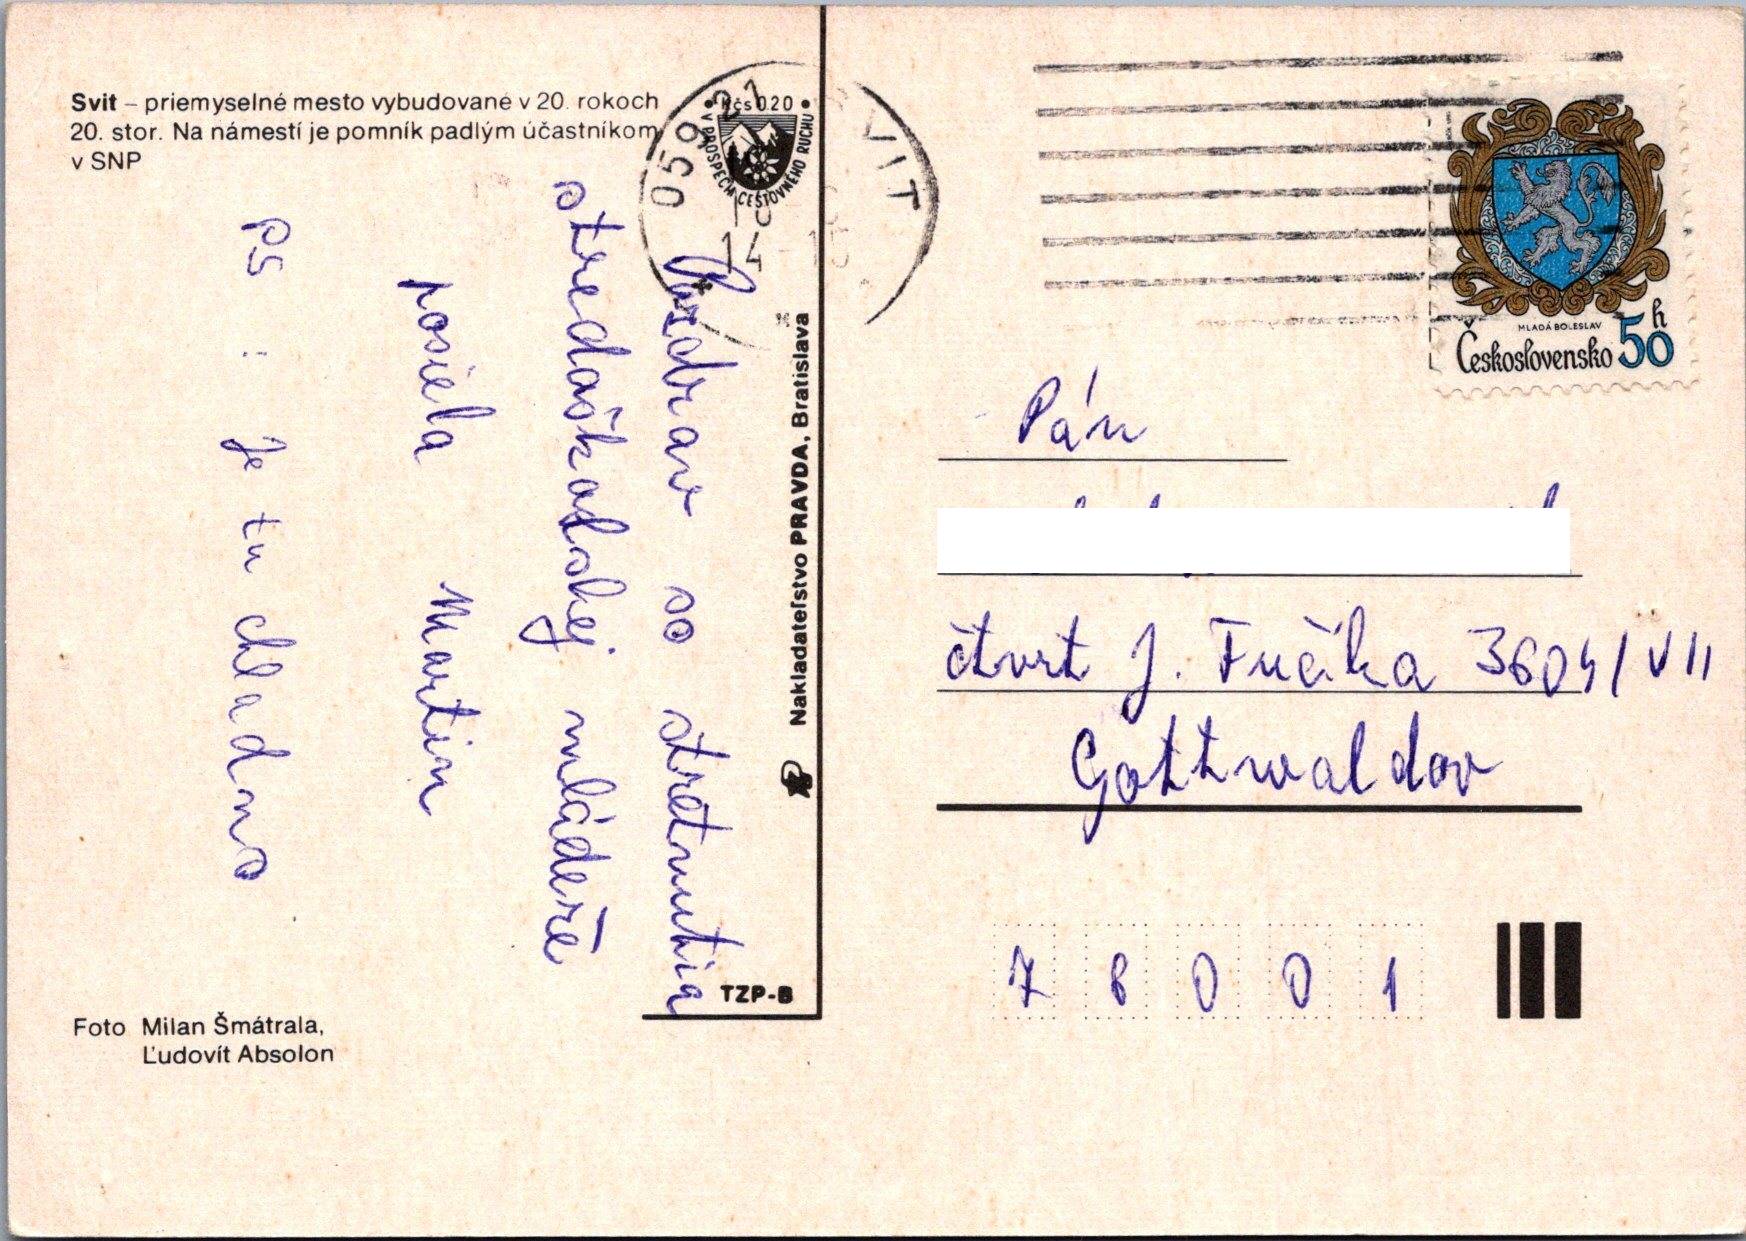 Svit – priemyselné mesto vybudované v 20. rokoch
20. stor. Na námestí je pomník padlým účastníkom
v SNP
Kčs 0.20
V PROSPECH CESTOVNÉHO RUCHU
059 21
VIT
14
Pozdrav so stretnutia
stredoškolskej mládeže
posiela Martin
PS : Je tu chladno
Nakladateľstvo PRAVDA, Bratislava
TZP-B
Foto Milan Šmátrala,
Ľudovít Absolon
MLADÁ BOLESLAV
Československo 50 h
Pán
čtvrt J. Fučíka 3604/VII
Gottwaldov
76001